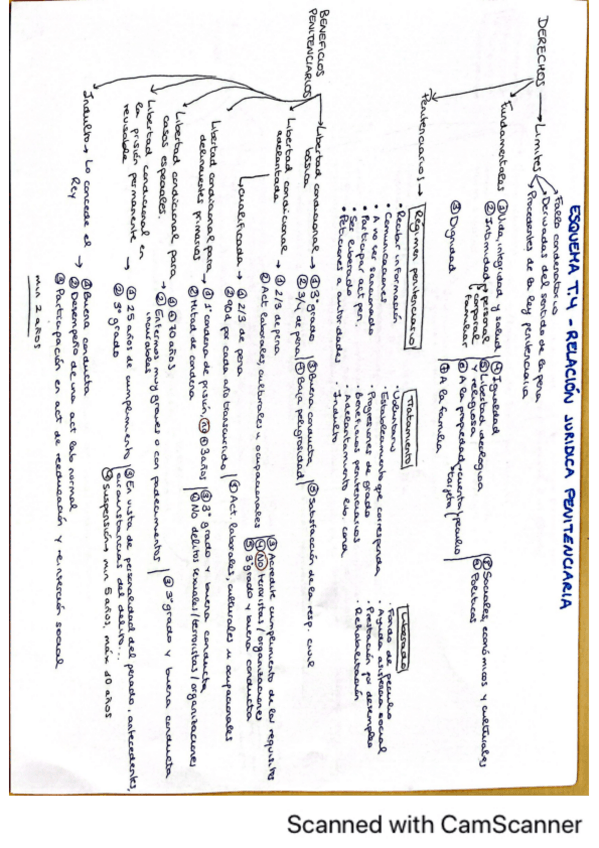 ESQUEMA T.4 - RELACIÓN JURÍDICA PENITENCIARIA
DERECHOS → Límites
Fallo condenatorio
Derivadas del sentido de la pena
Procedentes de la ley penitenciaria
Fundamentales
① Vida, integridad y salud
② Intimidad personal corporal familiar
③ Dignidad
④ Igualdad
⑤ Libertad ideológica y religiosa
⑥ A la propiedad → cuenta/peculio tarjeta
⑦ A la familia
⑧ Políticos
⑨ Sociales, económicos y culturales
Penitenciarios →
Régimen penitenciario
• Recibir información
• Comunicaciones
• A no ser sancionado
• Participar act pen.
• Ser liberado
• Peticiones a autoridades
Tratamiento
• Voluntario
• Establecimiento que corresponda
• Progresiones de grado
• Beneficios penitenciarios
• Adelantamiento lib. cond
• Indulto
Liberado
• Fondo de peculio
• Ayuda asistencia social
• Prestación por desempleo
• Rehabilitación
BENEFICIOS PENITENCIARIOS
Libertad condicional básica →
① 3º grado
② 3/4 de pena
③ Buena conducta
④ Baja peligrosidad
⑤ Satisfacción de la resp. civil
Libertad condicional adelantada →
① 2/3 de pena
② Act laborales, culturales u ocupacionales
③ Acredite cumplimiento de los requisitos
④ NO terroristas/organizaciones
⑤ 3º grado y buena conducta
↳ cualificada →
① 2/3 de pena
② 90d por cada año transcurrido
③ Act laborales, culturales u ocupacionales
Libertad condicional para delincuentes primarios →
① 1º condena de prisión, 3 años
② Mitad de condena
③ 3º grado y buena conducta
④ No delitos sexuales/terroristas/organizaciones
Libertad condicional para casos especiales. →
① 70 años.
② Enfermos muy graves o con padecimientos incurables
③ 3º grado y buena conducta
Libertad condicional en la prisión permanente revisable →
① 25 años de cumplimiento
② 3º grado
③ En vista de personalidad del penado, antecedentes, circunstancias del delito...
④ Suspensión min 5 años, máx 10 años
Indulto → Lo concede el Rey →
① Buena conducta
② Desempeño de una act lab normal
③ Participación en act de reeducación y reinserción social
min 2 años
Scanned with CamScanner